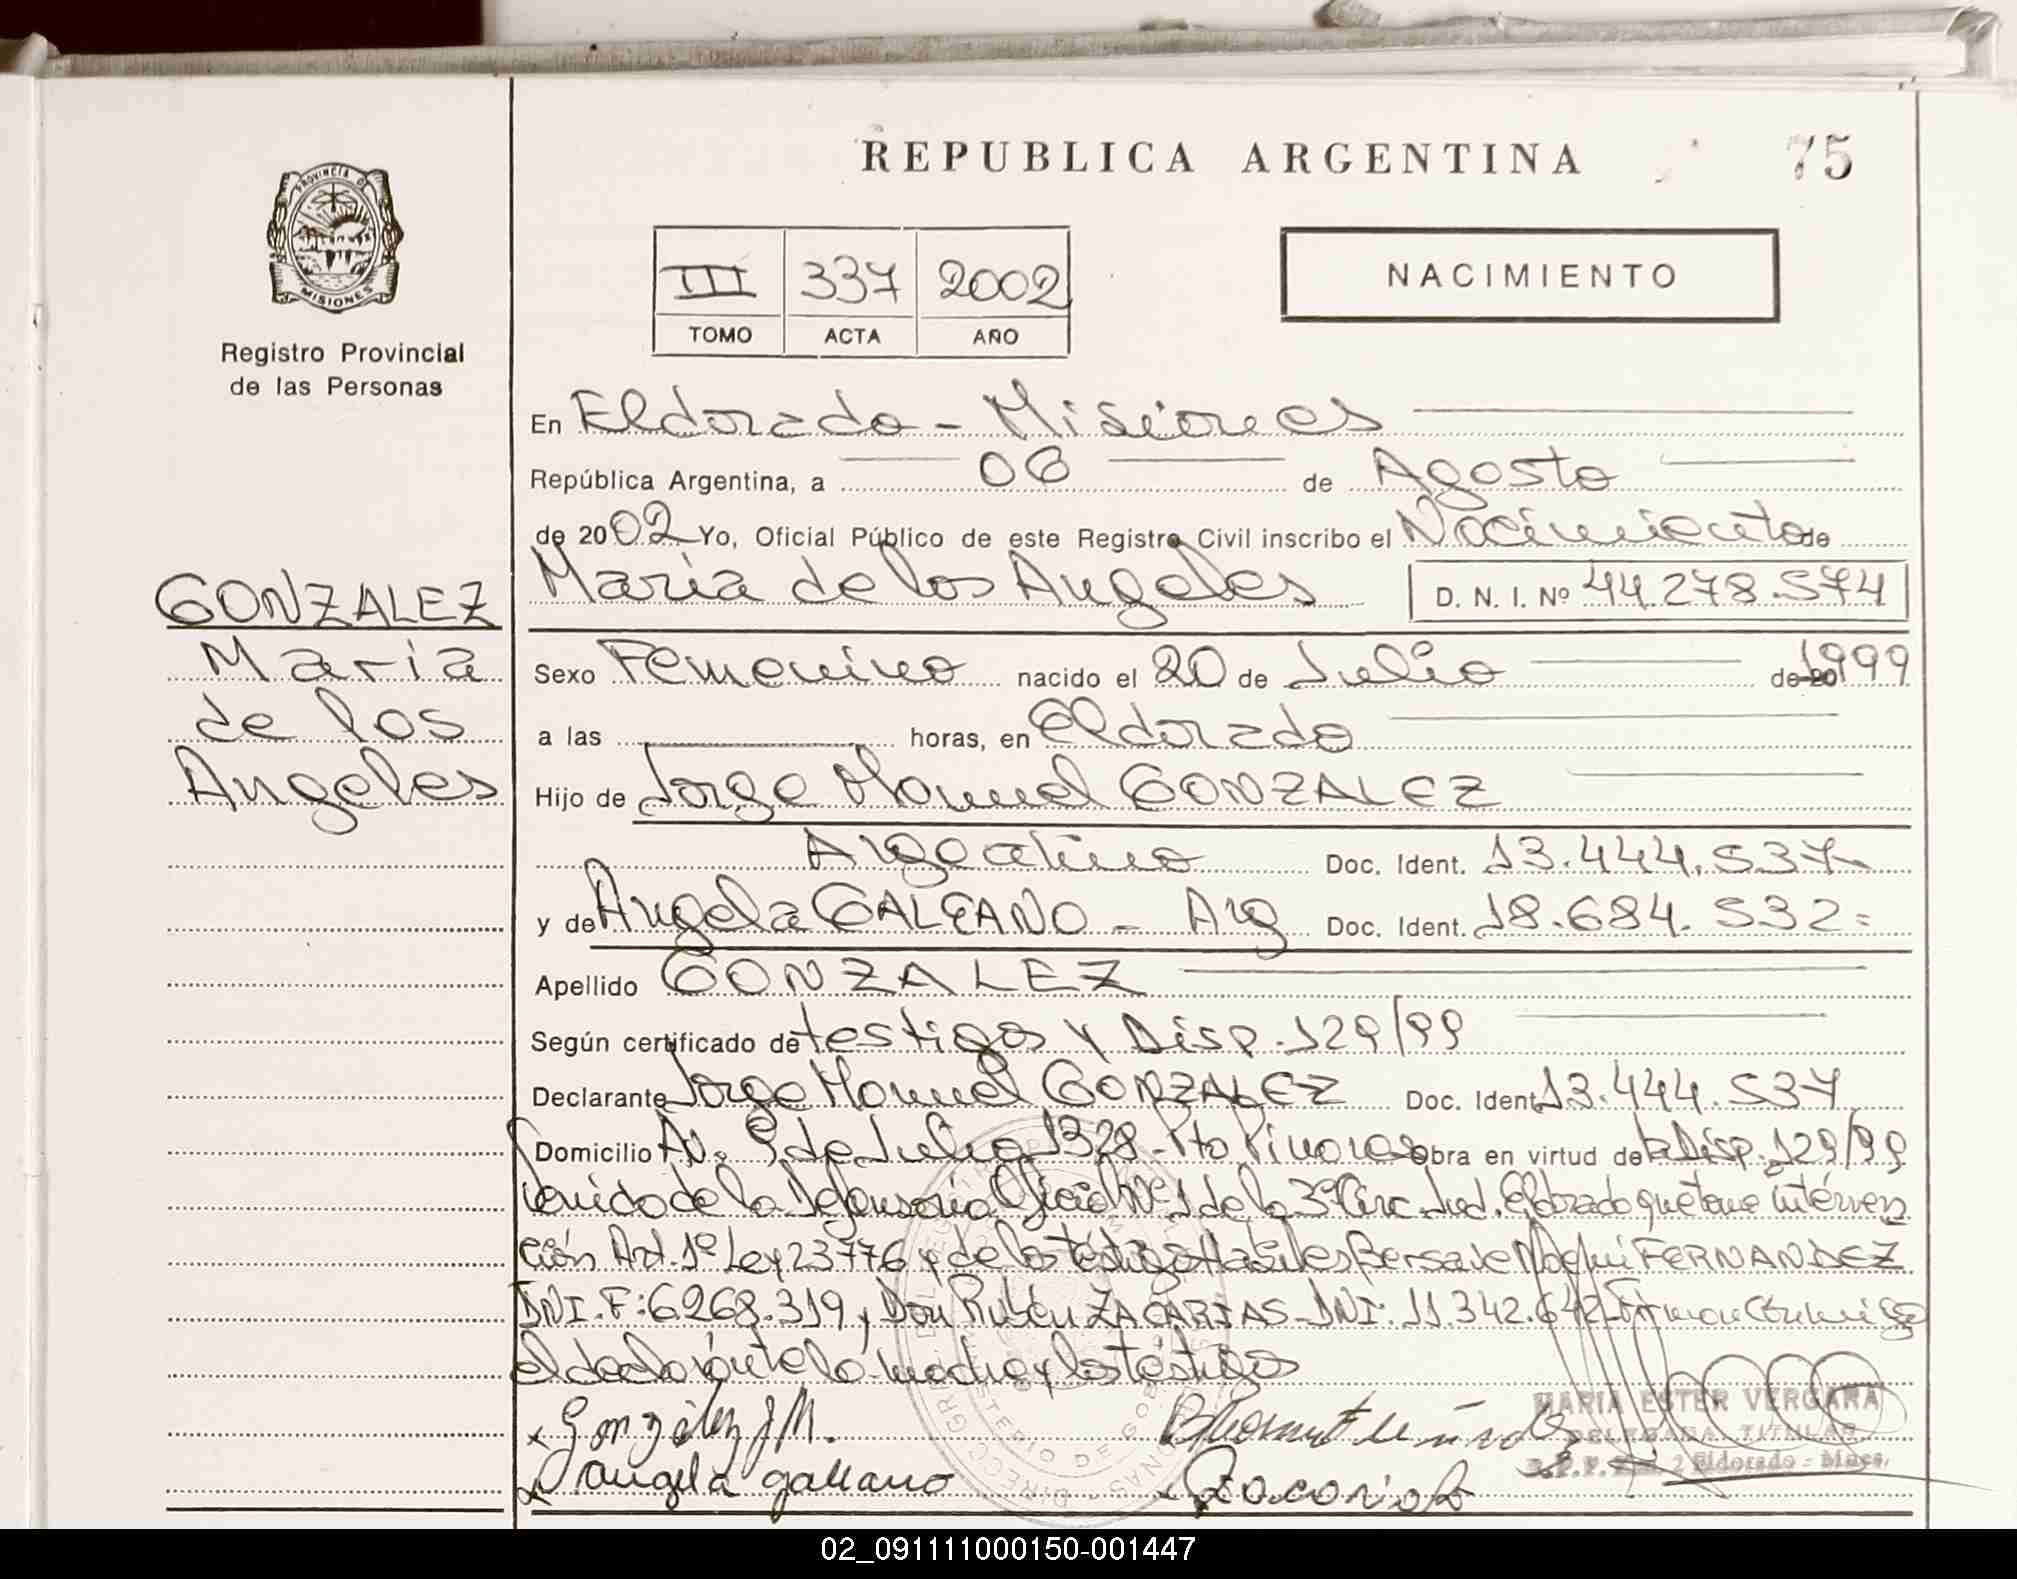 REPUBLICA ARGENTINA
75
PROVINCIA DE
MISIONES
Registro Provincial
de las Personas
III 337 2002
TOMO ACTA AÑO
NACIMIENTO
En Eldorado - Misiones
República Argentina, a 06 de Agosto
de 2002 Yo, Oficial Público de este Registro Civil inscribo el Nacimiento de
Maria de los Angeles D. N. I. Nº 44.278.574
GONZALEZ
Maria
de los
Angeles
Sexo Femenino nacido el 20 de Julio de 20 1999
a las horas, en Eldorado
Hijo de Jorge Manuel GONZALEZ
Argentino Doc. Ident. 13.444.537-
y de Angela GALEANO - Arg Doc. Ident. 18.684.532=
Apellido GONZALEZ
Según certificado de testigos y Disp. 129/99
Declarante Jorge Manuel GONZALEZ Doc. Ident. 13.444.537
Domicilio Av. 9 de Julio 1328 - Pto Piray obra en virtud de la Disp. 129/99
venido de la Defensoria Oficial Nº 1 de la 3º Circ. Jud. Eldorado que tane interven
ción Art. 1º Ley 23776 y de los testigos Habiles FERNANDEZ
DNI. F: 6.268.319 y Don Rubén ZACARIAS - DNI. 11.342.642 - Firman Conmigo
el declarante la madre y los testigos
x González J M.
x Angela galeano
x Zacarias
MARIA ESTER VERGARA
DELEGADA TITULAR
R.P.P. 2 Eldorado - Mnes.
02_091111000150-001447